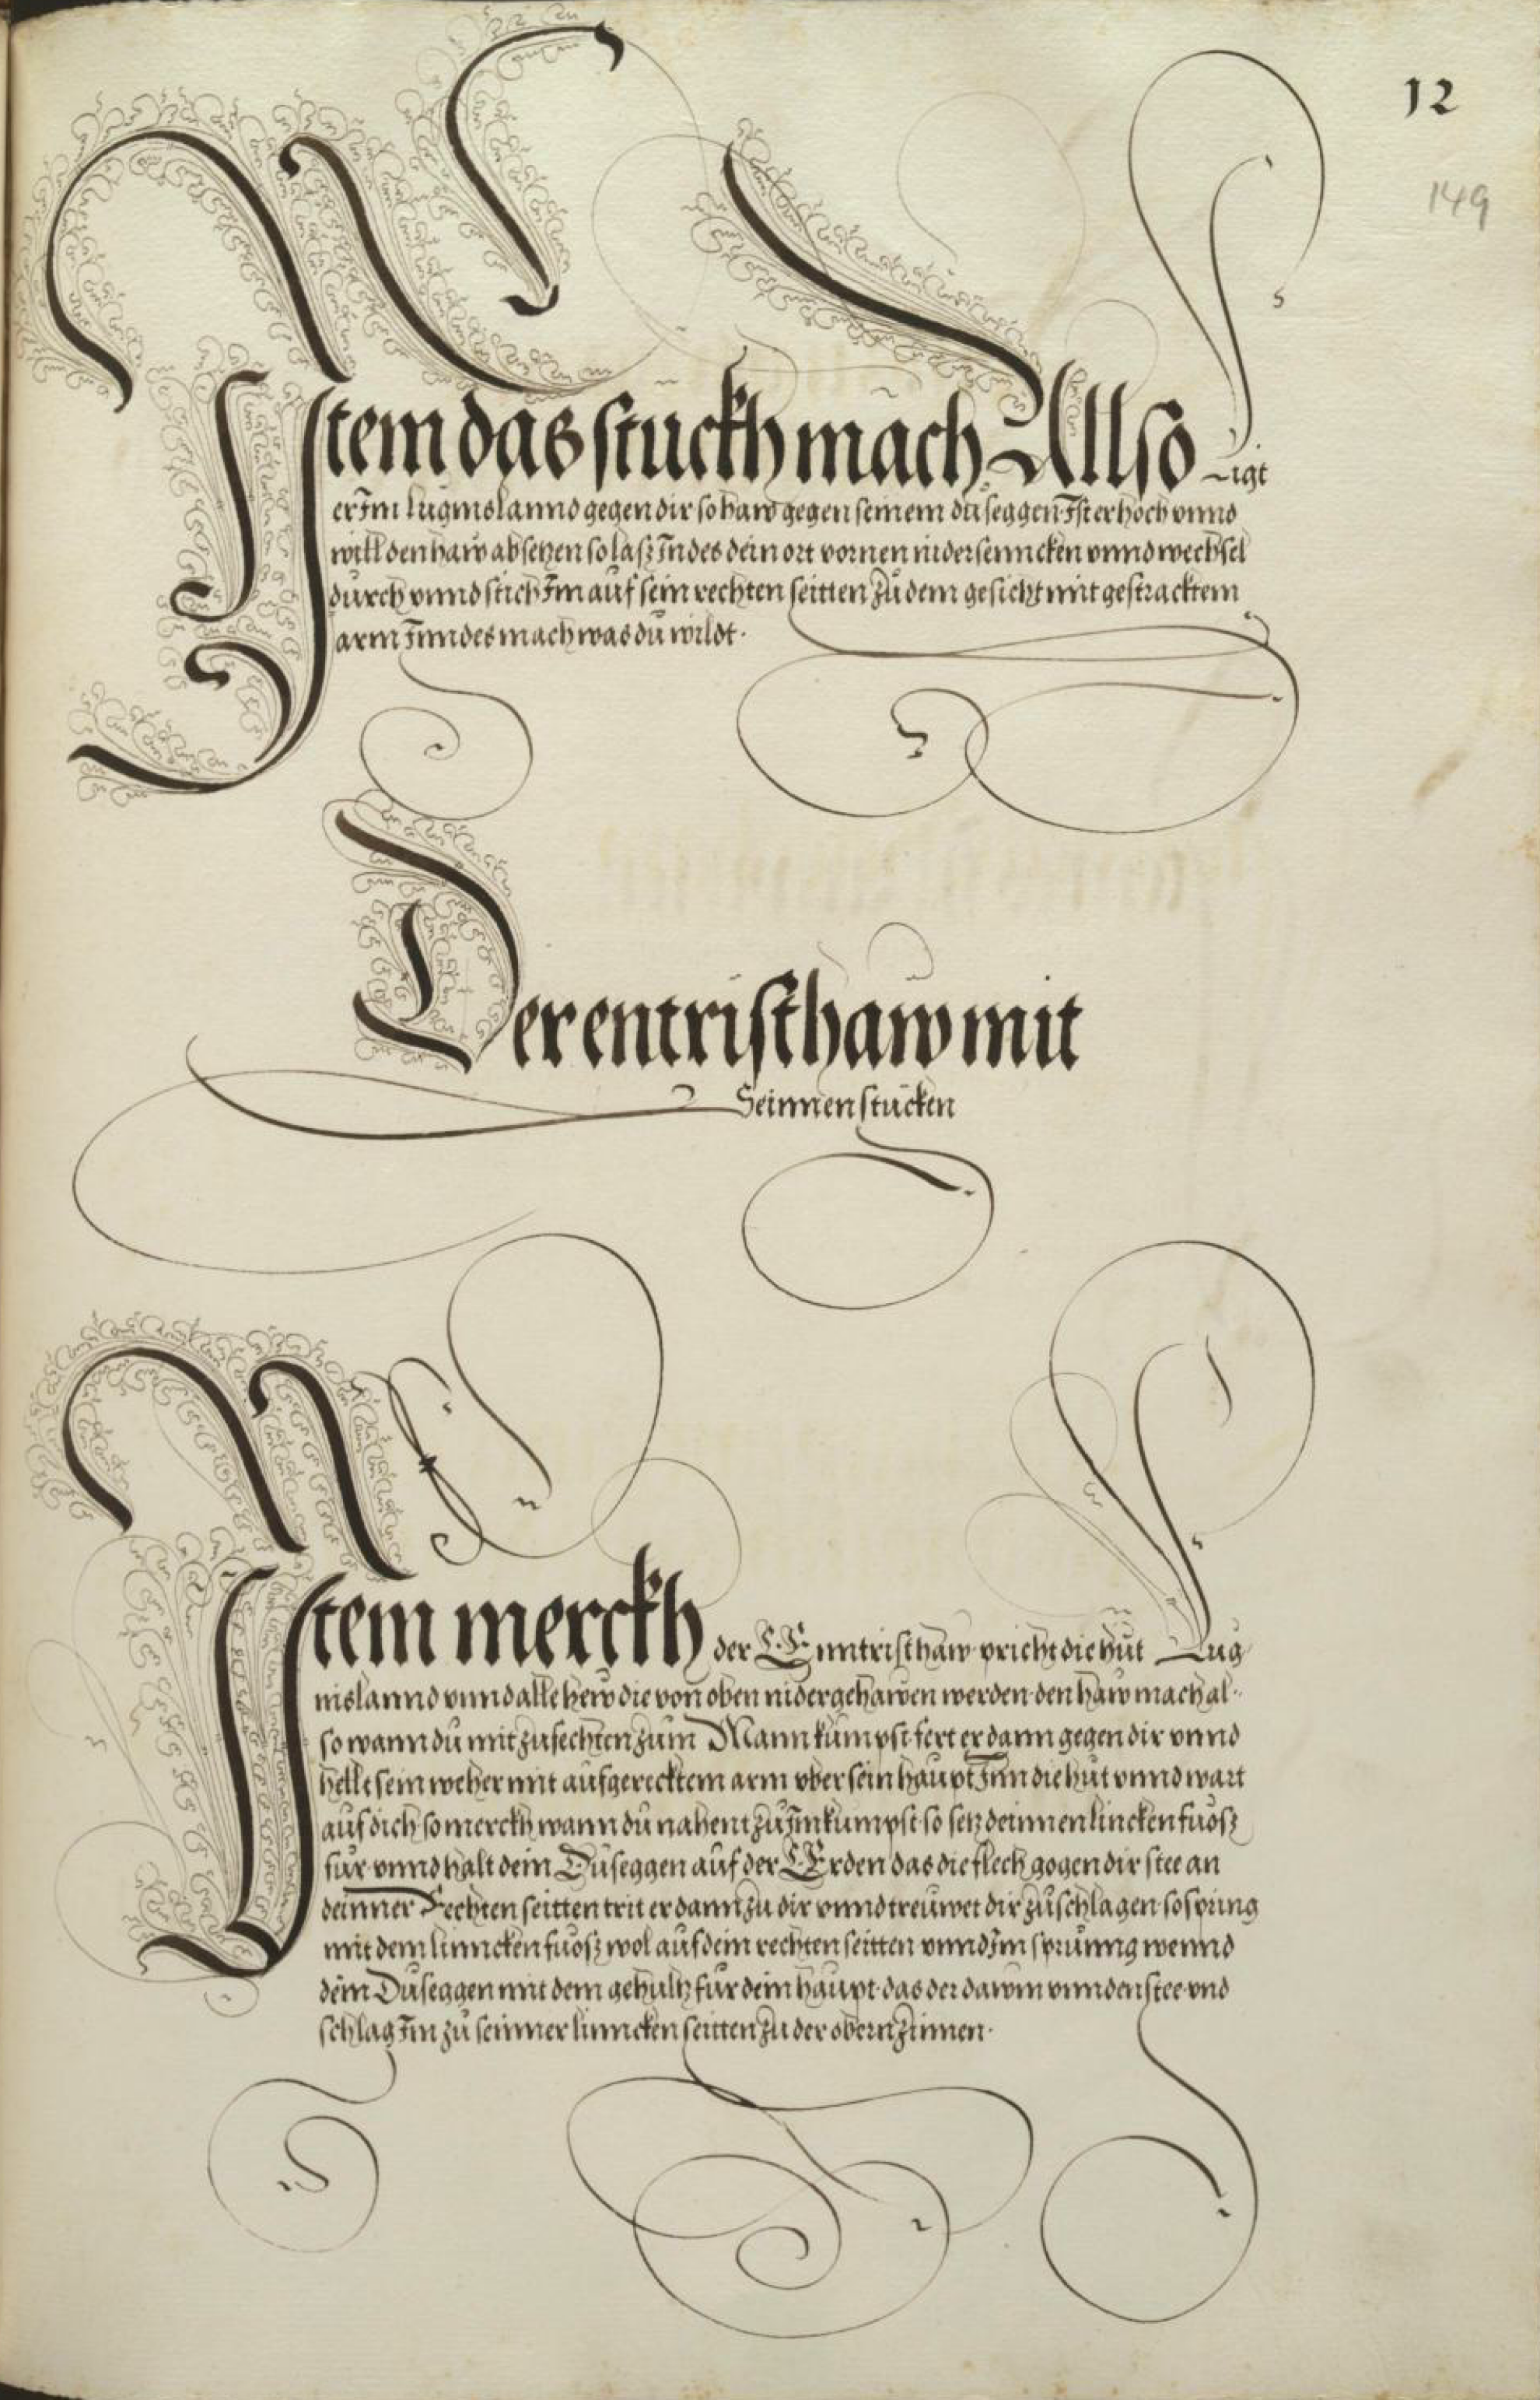 12
149
Item das stuckh mach Allso Ligt
er Im lůginslannd gegen dir so haw gegen seinem duseggen Ist er hoch vnnd
will den haw absetzen so lasz Indes dein ort vornen nidersenncken vnnd wechsel
durch vnnd stich Im auf sein rechten seitten zu dem gesicht mit gestracktem
arm Inndes mach was du wildt.
Der entristhaw mit
Seinnen stucken
Item merckh der Enntristhaw pricht die hut Lug
nislannd vnnd alle hew die von oben nider gehawen werden den haw mach al-
so wann du mit zufechten zum Mann kumpst fert er dann gegen dir vnnd
hellt sein weher mit aufgerecktem arm vber sein haupt Inn die hut vnnd wart
auf dich so merckh wann du nahent zu Im kumpst so setz deinnen lincken fuosz
fur vnnd halt dein Duseggen auf der Erden das die flech gogen dir stee an
deinner Rechten seitten trit er dann zu dir vnnd treuwet dir zuschlagen so spring
mit dem linncken fuosz wol auf dein rechten seitten vnnd Im sprunng wennd
dein Duseggen mit dem gehultz fur dein haupt das der dawm vnnden stee vnd
schlag Im zu seinner linncken seitten zu der obern zinnen.